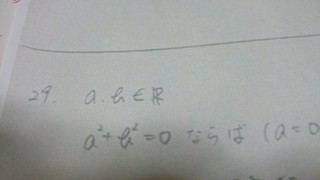 29. a.b ∈ ℝ
a²+b²=0 ならば (a=0